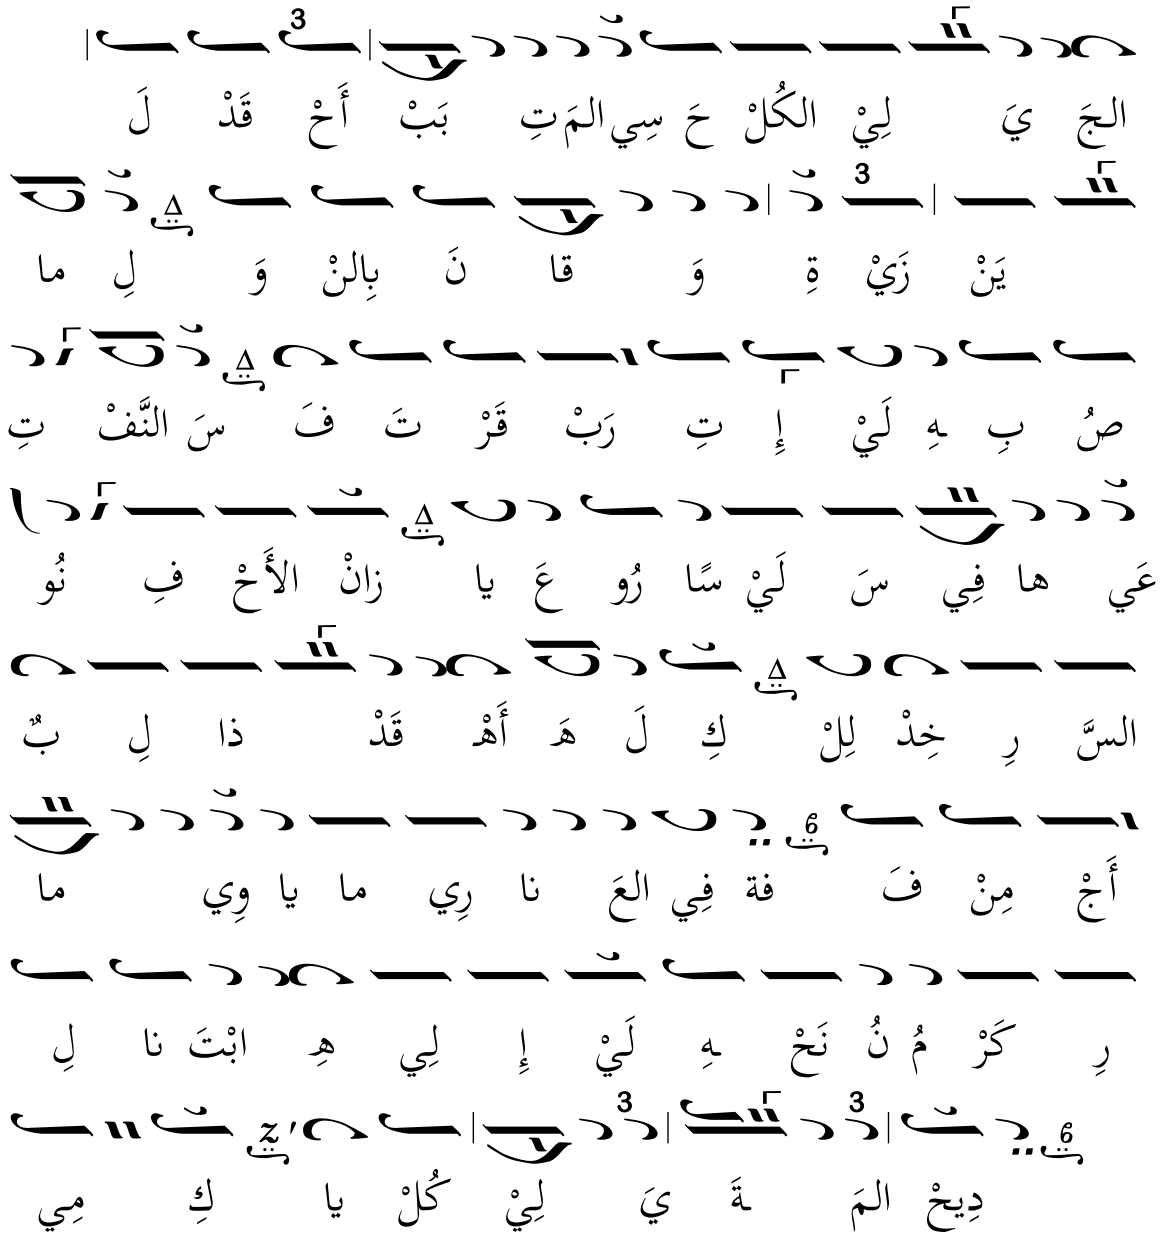 لَ قَدْ أَحْ بَبْ تِ المَ سِي حَ الكُلْ لِيْ يَ الجَ
ما لِ وَ بِالنْ نَ قا وَ ةِ زَيْ يَنْ
تِ النَّفْ سَ فَ تَ قَرْ رَبْ تِ إِ لَيْ هِ بِ صُ
نُو فِ الأَحْ زانْ يا عَ رُو سًا لَيْ سَ فِي ها عَي
بٌ لِ ذا قَدْ أَهْ هَ لَ كِ لِلْ خِذْ رِ السَّ
ما وِي يا ما رِي نا العَ فِي فة فَ مِنْ أَجْ
لِ نا ابْتَ هِ لِي إِ لَيْ هِ نَحْ نُ مُ كَرْ رِ
مِي كِ يا كُلْ لِيْ يَ ةَ المَ دِيحْ